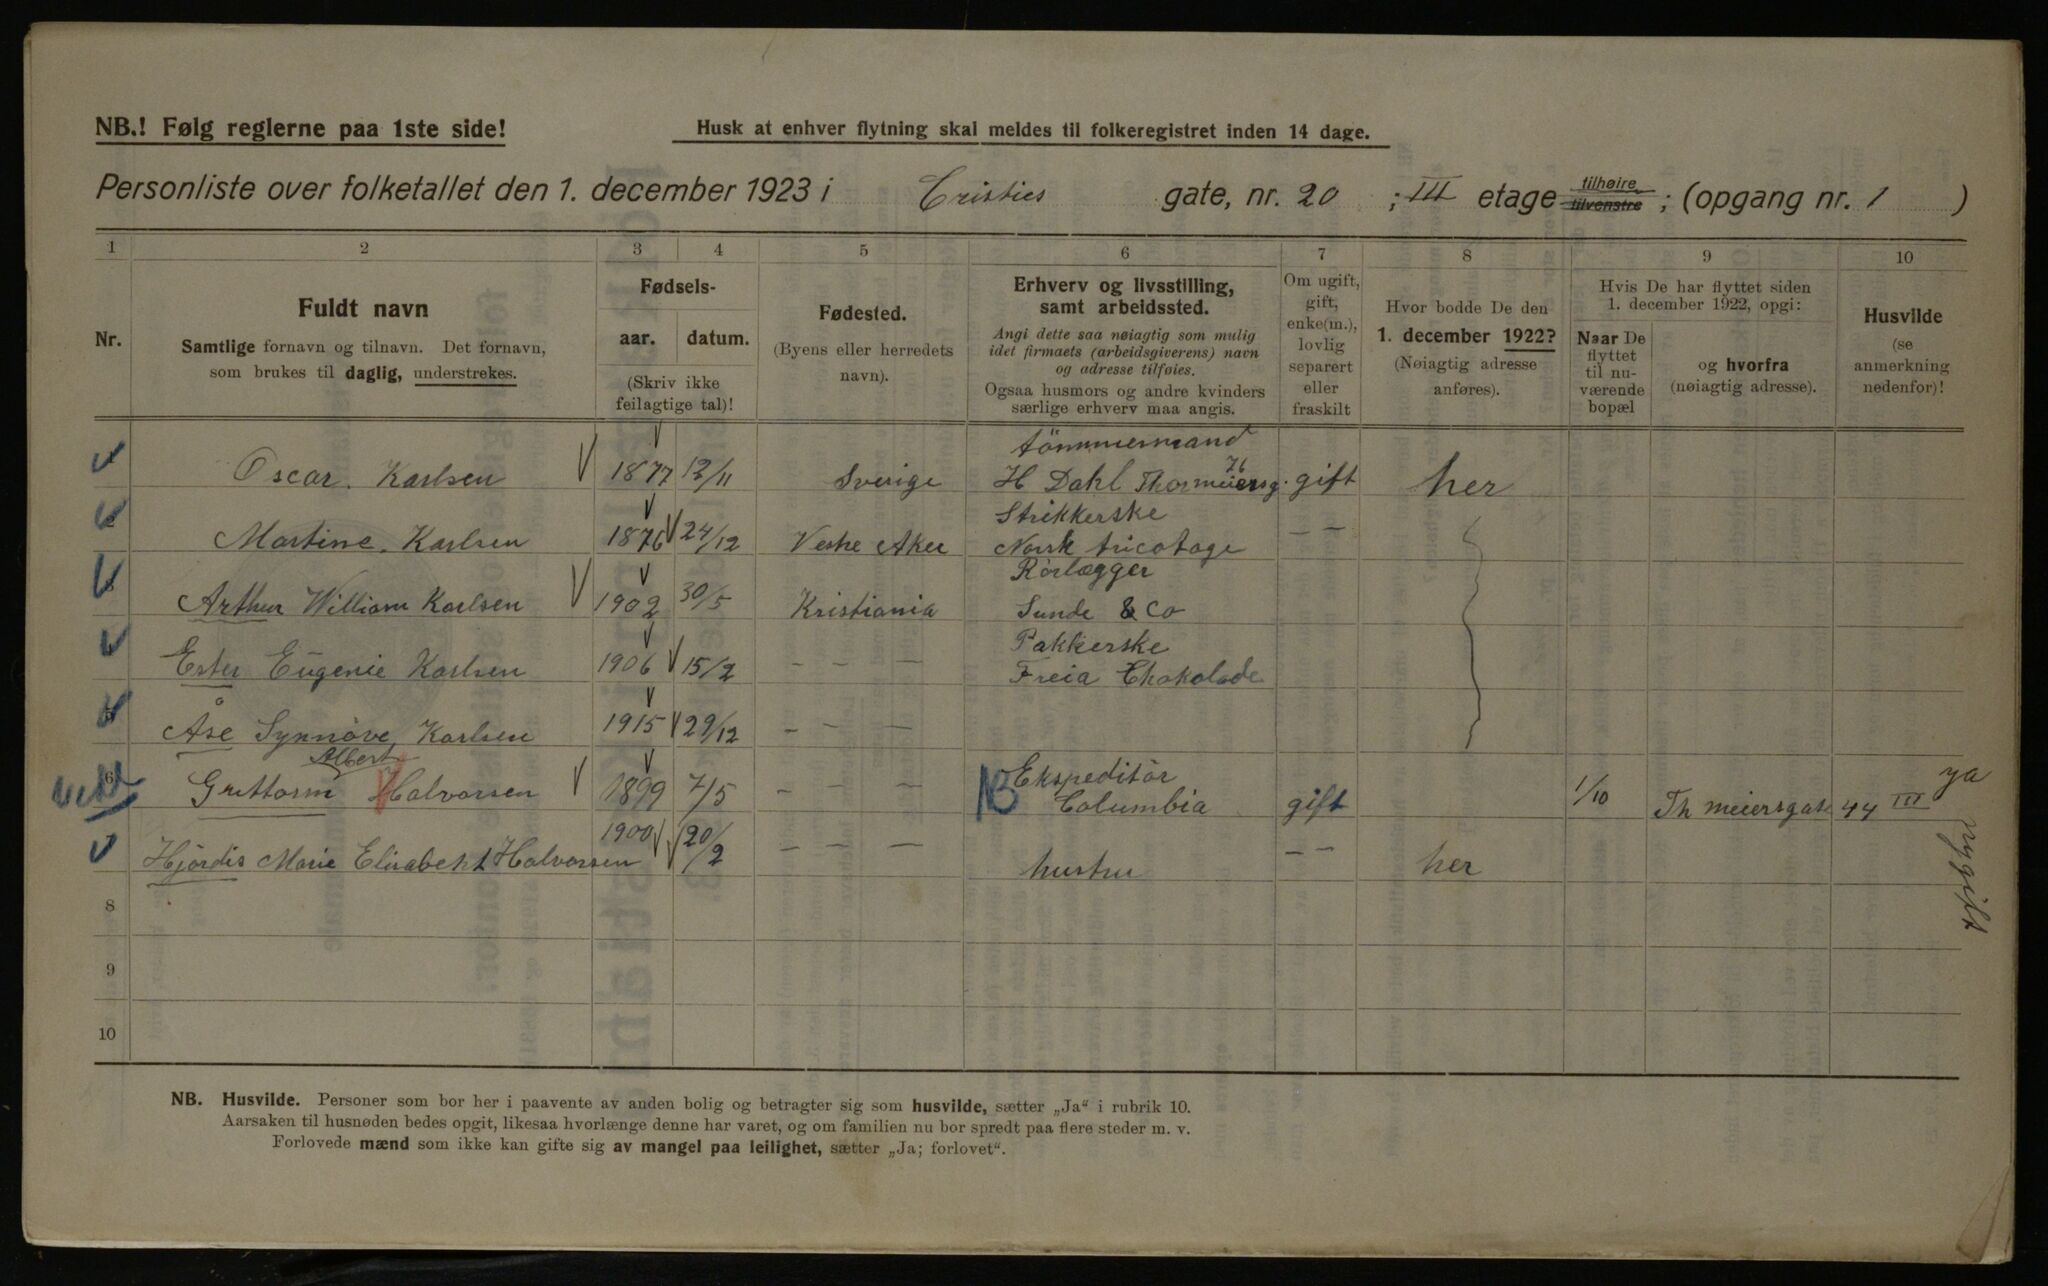 NB.! Følg reglerne paa 1ste side!
Husk at enhver flytning skal meldes til folkeregistret inden 14 dage.
Personliste over folketallet den 1. december 1923 i Cristies gate, nr. 20 ; III etage tilhøire tilvenstre ; (opgang nr. 1 )
1 2 3 4 5 6 7 8 9 10
Nr.
Fuldt navn
Samtlige fornavn og tilnavn. Det fornavn,
som brukes til daglig, understrekes.
Fødsels-
aar. datum.
(Skriv ikke
feilagtige tal)!
Fødested.
(Byens eller herredets
navn).
Erhverv og livsstilling,
samt arbeidssted.
Angi dette saa nøiagtig som mulig
idet firmaets (arbeidsgiverens) navn
og adresse tilføies.
Ogsaa husmors og andre kvinders
særlige erhverv maa angis.
Om ugift,
gift,
enke(m.),
lovlig
separert
eller
fraskilt
Hvor bodde De den
1. december 1922?
(Nøiagtig adresse
anføres).
Hvis De har flyttet siden
1. december 1922, opgi:
Naar De
flyttet
til nu-
værende
bopæl
og hvorfra
(nøiagtig adresse).
Husvilde
(se
anmerkning
nedenfor)!
tömmermand
Oscar. Karlsen 1877 12/11 Sverige H Dahl Thormeiersg. 76 gift her
Strikkerske
2 Martine. Karlsen 1876 24/12 Vestre Aker Norsk tricotage — —
Rörlægger
Arthur William Karlsen 1902 30/5 Kristiania Sunde & Co
Pakkerske
Ester Eugenie Karlsen 1906 15/2 — — — Freia Chokolade
5 Åse Synnöve Karlsen 1915 29/12 — — —
Albert
6 Guttorm Halvorsen 1899 7/5 — — — NB Ekspeditör
Columbia gift 1/10 Th meiersgate 44 III ya
nygift
Hjördis Marie Elisabeht Halvorsen 1900 20/2 — — — hustru — — her
8
9
10
NB. Husvilde. Personer som bor her i paavente av anden bolig og betragter sig som husvilde, sætter „Ja“ i rubrik 10.
Aarsaken til husnøden bedes opgit, likesaa hvorlænge denne har varet, og om familien nu bor spredt paa flere steder m. v.
Forlovede mænd som ikke kan gifte sig av mangel paa leilighet, sætter „Ja; forlovet“.